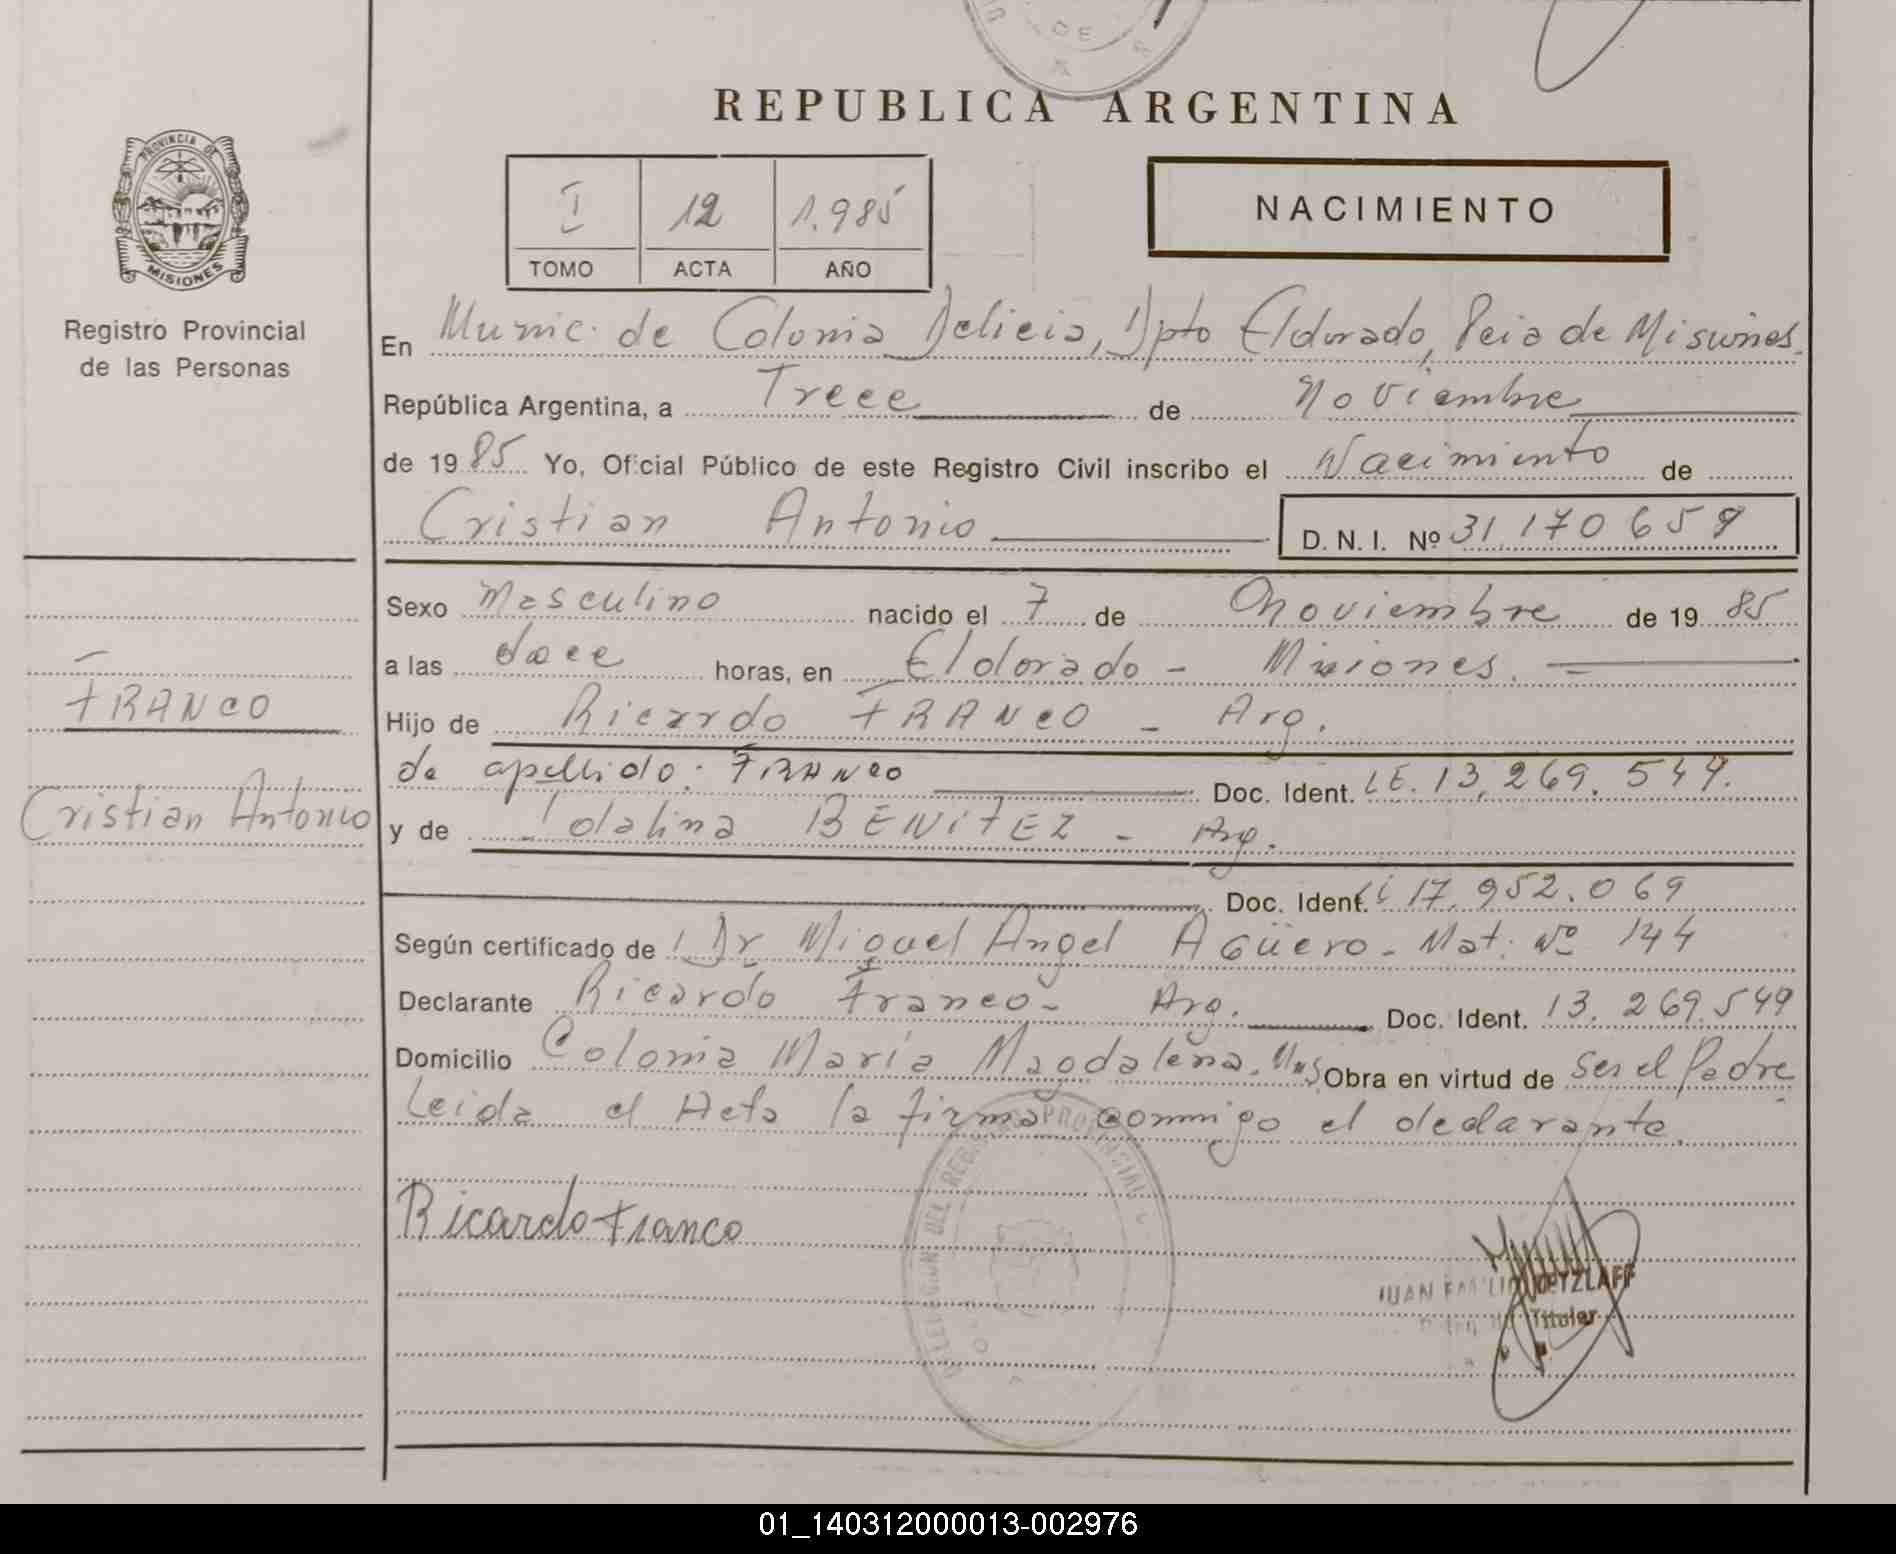 REPUBLICA ARGENTINA
PROVINCIA DE
MISIONES
Registro Provincial
de las Personas
I 12 1.985
TOMO ACTA AÑO
NACIMIENTO
En Munic. de Colonia Delicia, Dpto Eldorado, Pcia de Misiones.
República Argentina, a Trece de Noviembre
de 19 85 Yo, Oficial Público de este Registro Civil inscribo el Nacimiento de
Cristian Antonio D. N. I. Nº 31.170.659
Sexo Masculino nacido el 7 de Noviembre de 19 85
a las doce horas, en Eldorado - Misiones.
Hijo de Ricardo FRANCO - Arg.
de apellido. FRANCO Doc. Ident. LE. 13.269.549.
y de Idalina BENITEZ - Arg.
Doc. Ident. 17.952.069
Según certificado de Dr Miguel Angel AGÜERO - Mat. Nº 144
Declarante Ricardo Franco - Arg. Doc. Ident. 13.269.549
Domicilio Colonia María Magdalena. Mns Obra en virtud de ser el Padre
Leida el Acta la firma conmigo el declarante.
Ricardo Franco
FRANCO
Cristian Antonio
DELEGACION DEL REG. PROVINCIAL
JUAN EMILIO
Titular
01_140312000013-002976